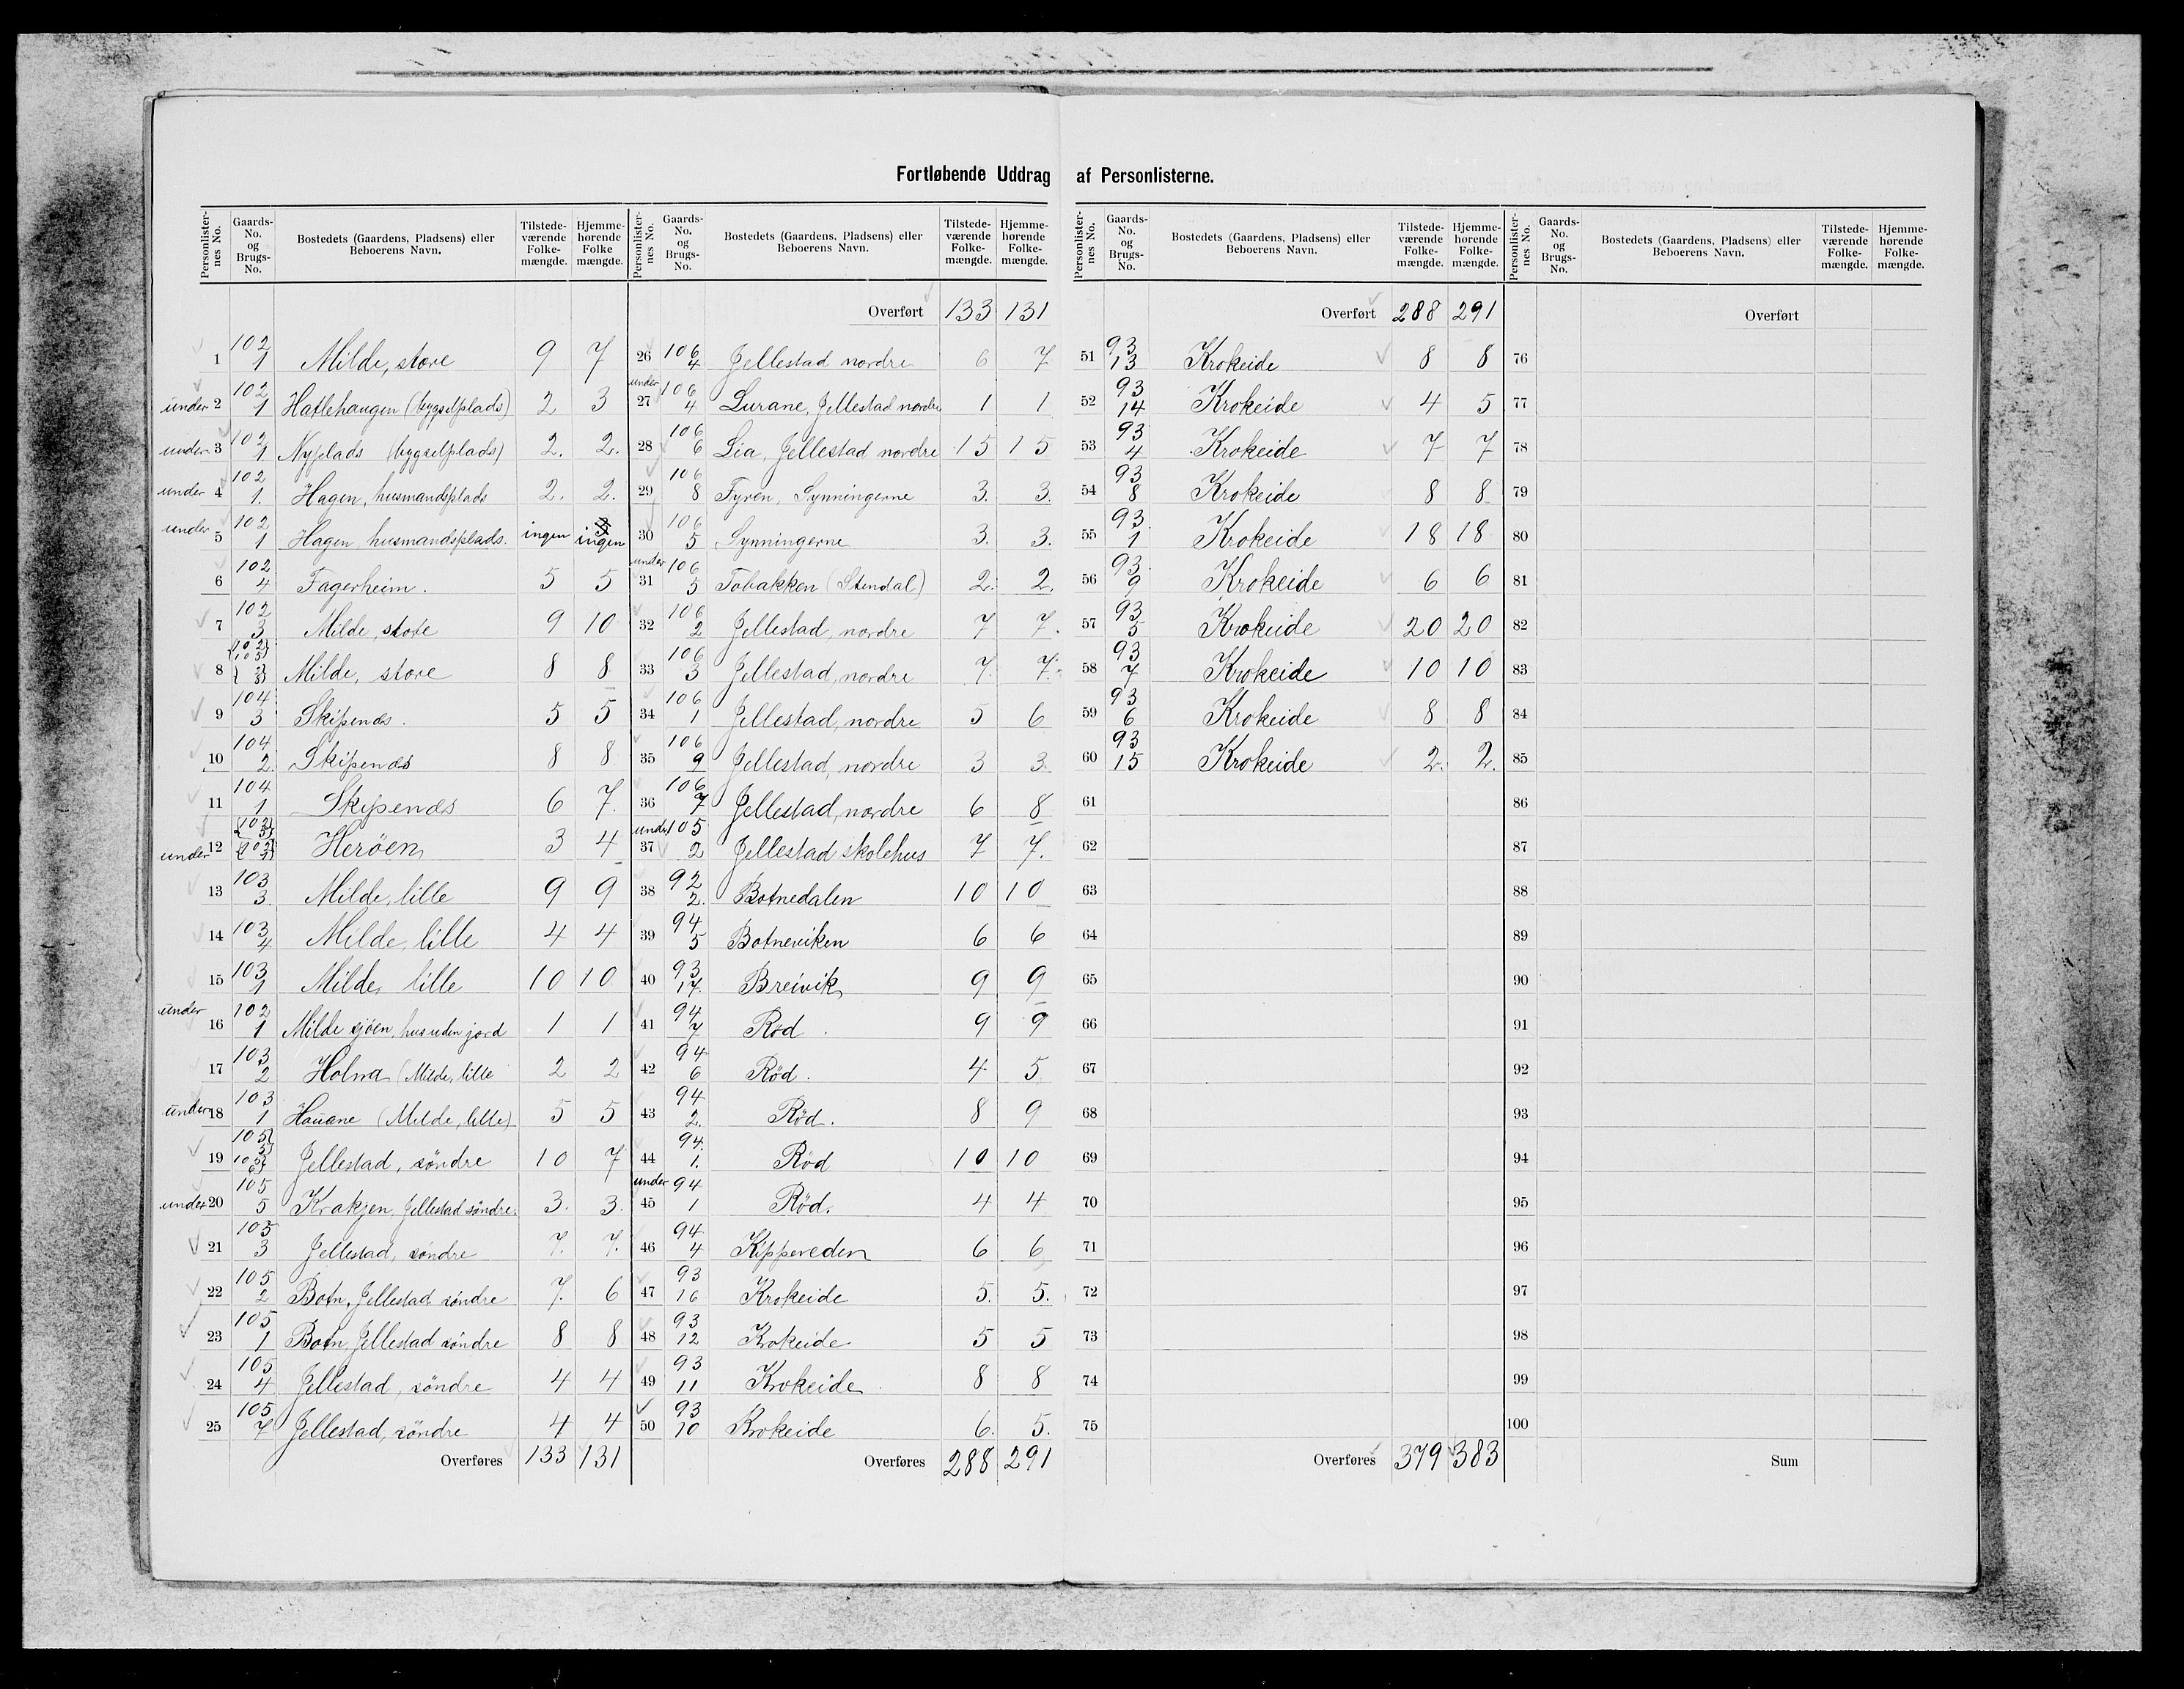 Fortløbende Uddrag af Personlisterne.
Personlister-nes No. | Gaards-No. og Brugs-No. | Bostedets (Gaardens, Pladsens) eller Beboerens Navn. | Tilstede-værende Folke-mængde. | Hjemme-hørende Folke mængde.
1 102 1 Milde, store 9 7
under 2 102 1 Hatlehaugen (bygselplads) 2 3
under 3 102 1 Nyplads (bygselplads) 2. 2.
under 4 102 1. Hagen, husmandsplads 2. 2.
under 5 102 1 Hagen husmandsplads. ingen ingen
6 102 4 Fagerheim. 5 5
7 102 3 Milde, store 9 10
8 Milde, store 8 8
9 104 3 Skipenæs. 5 5
10 104 2. Skipenæs 8 8
11 104 1 Skipenæs 6 7.
under 12 Herøen 3 4
13 103 3. Milde, lille 9 9
14 103 4 Milde, lille 4 4
15 103 1 Milde, lille 10 10
under 16 102 1 Milde sjøen, hus uden jord 1 1
17 103 2 Holmen (Milde, lille 2 2
under 18 103 1 Hauane (Milde, lille) 5 5
19 105 5 105 6 Jellestad, søndre 10 7
under 20 105 5 Krakjen, Jellestad søndre. 3. 3.
21 105 3 Jellestad, søndre 7. 7.
22 105 2 Botn, Jellestad søndre 7. 6
23 105 1 Botn, Jellestad søndre 8 8
24 105 4 Jellestad, søndre 4 4
25 105 7 Jellestad, søndre 4 4
Overføres 133 131
Personlister-nes No. | Gaards-No. og Brugs-No. | Bostedets (Gaardens, Pladsens) eller Beboerens Navn. | Tilstede-værende Folke-mængde. | Hjemme-hørende Folke-mængde.
Overført 133 131
26 106 4 Jellestad nordre 6 7
under 27 106 4 Lurane, Jellestad nordre 1 1
28 106 6 Lia, Jellestad nordre 15 15
29 106 8 Fyren, Synningerne 3. 3.
30 106 5 Synningerne 3. 3.
under 31 106 5 Tobakken (Stendal) 2. 2.
32 106 2 Jellestad, nordre 7 7.
33 106 3 Jellestad, nordre 7. 7.
34 106 1 Jellestad, nordre 5 6
35 106 9 Jellestad, nordre 3 3.
36 106 7 Jellestad, nordre 6 8
under 37 105 2 Jellestad skolehus 7 7.
38 92 2. Botnedalen 10 10
39 94 5 Botneviken 6 6
40 93 17. Breivik 9 9
41 94 7 Rød. 9 9
42 94 6 Rød. 4 5
43 94 2. Rød. 8 9
44 94. 1. Rød 10 10
under 45 94 1 Rød. 4 4
46 94 4 Kippereden 6 6
47 93 16 Krokeide 5. 5.
48 93 12 Krokeide 5 5
49 93 11 Krokeide 8 8
50 93 10 Krokeide 6. 5.
Overføres 288 291
Personlister-nes No. | Gaards-No. og Brugs-No. | Bostedets (Gaardens, Pladsens) eller Beboerens Navn. | Tilstede-værende Folke-mængde. | Hjemme-hørende Folke-mængde.
Overført 288 291
51 93 13 Krokeide 8 8
52 93 14 Krokeide 4 5
53 93 4 Krokeide 7 7
54 93 8 Krokeide 8 8
55 93. 1 Krokeide 18 18
56 93. 9 Krokeide 6 6
57 93 5 Krokeide 20 20
58 93 7 Krokeide 10 10
59 93 6 Krokeide 8 8
60 93 15 Krokeide 2. 2.
61
62
63
64
65
66
67
68
69
70
71
72
73
74
75
Overføres 379 383
Personlister-nes No. | Gaards-No. og Brugs-No. | Bostedets (Gaardens, Pladsens) eller Beboerens Navn. | Tilstede-værende Folke-mængde. | Hjemme-hørende Folke-mængde.
Overført
76
77
78
79
80
81
82
83
84
85
86
87
88
89
90
91
92
93
94
95
96
97
98
99
100
Sum